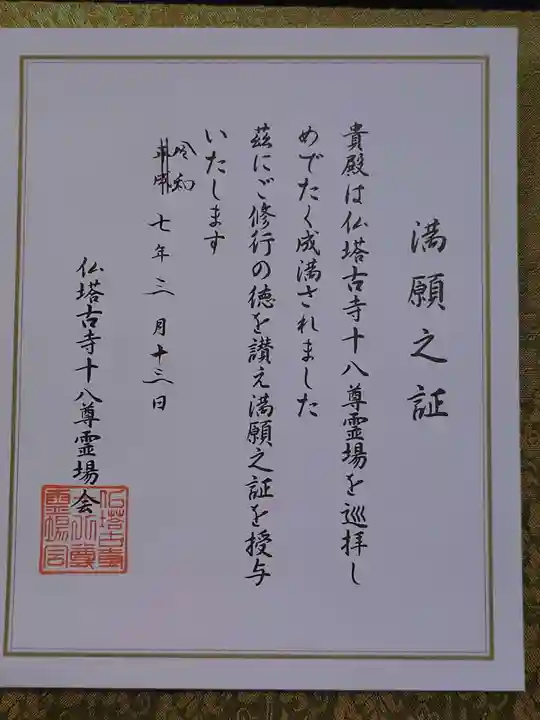 満願之証
貴殿は仏塔古寺十八尊霊場を巡拝し
めでたく成満されました
茲にご修行の徳を讃え満願之証を授与
いたします
令和
平成 七年 三月十三日
仏塔古寺十八尊霊場会
仏塔古寺
十八尊
霊場会